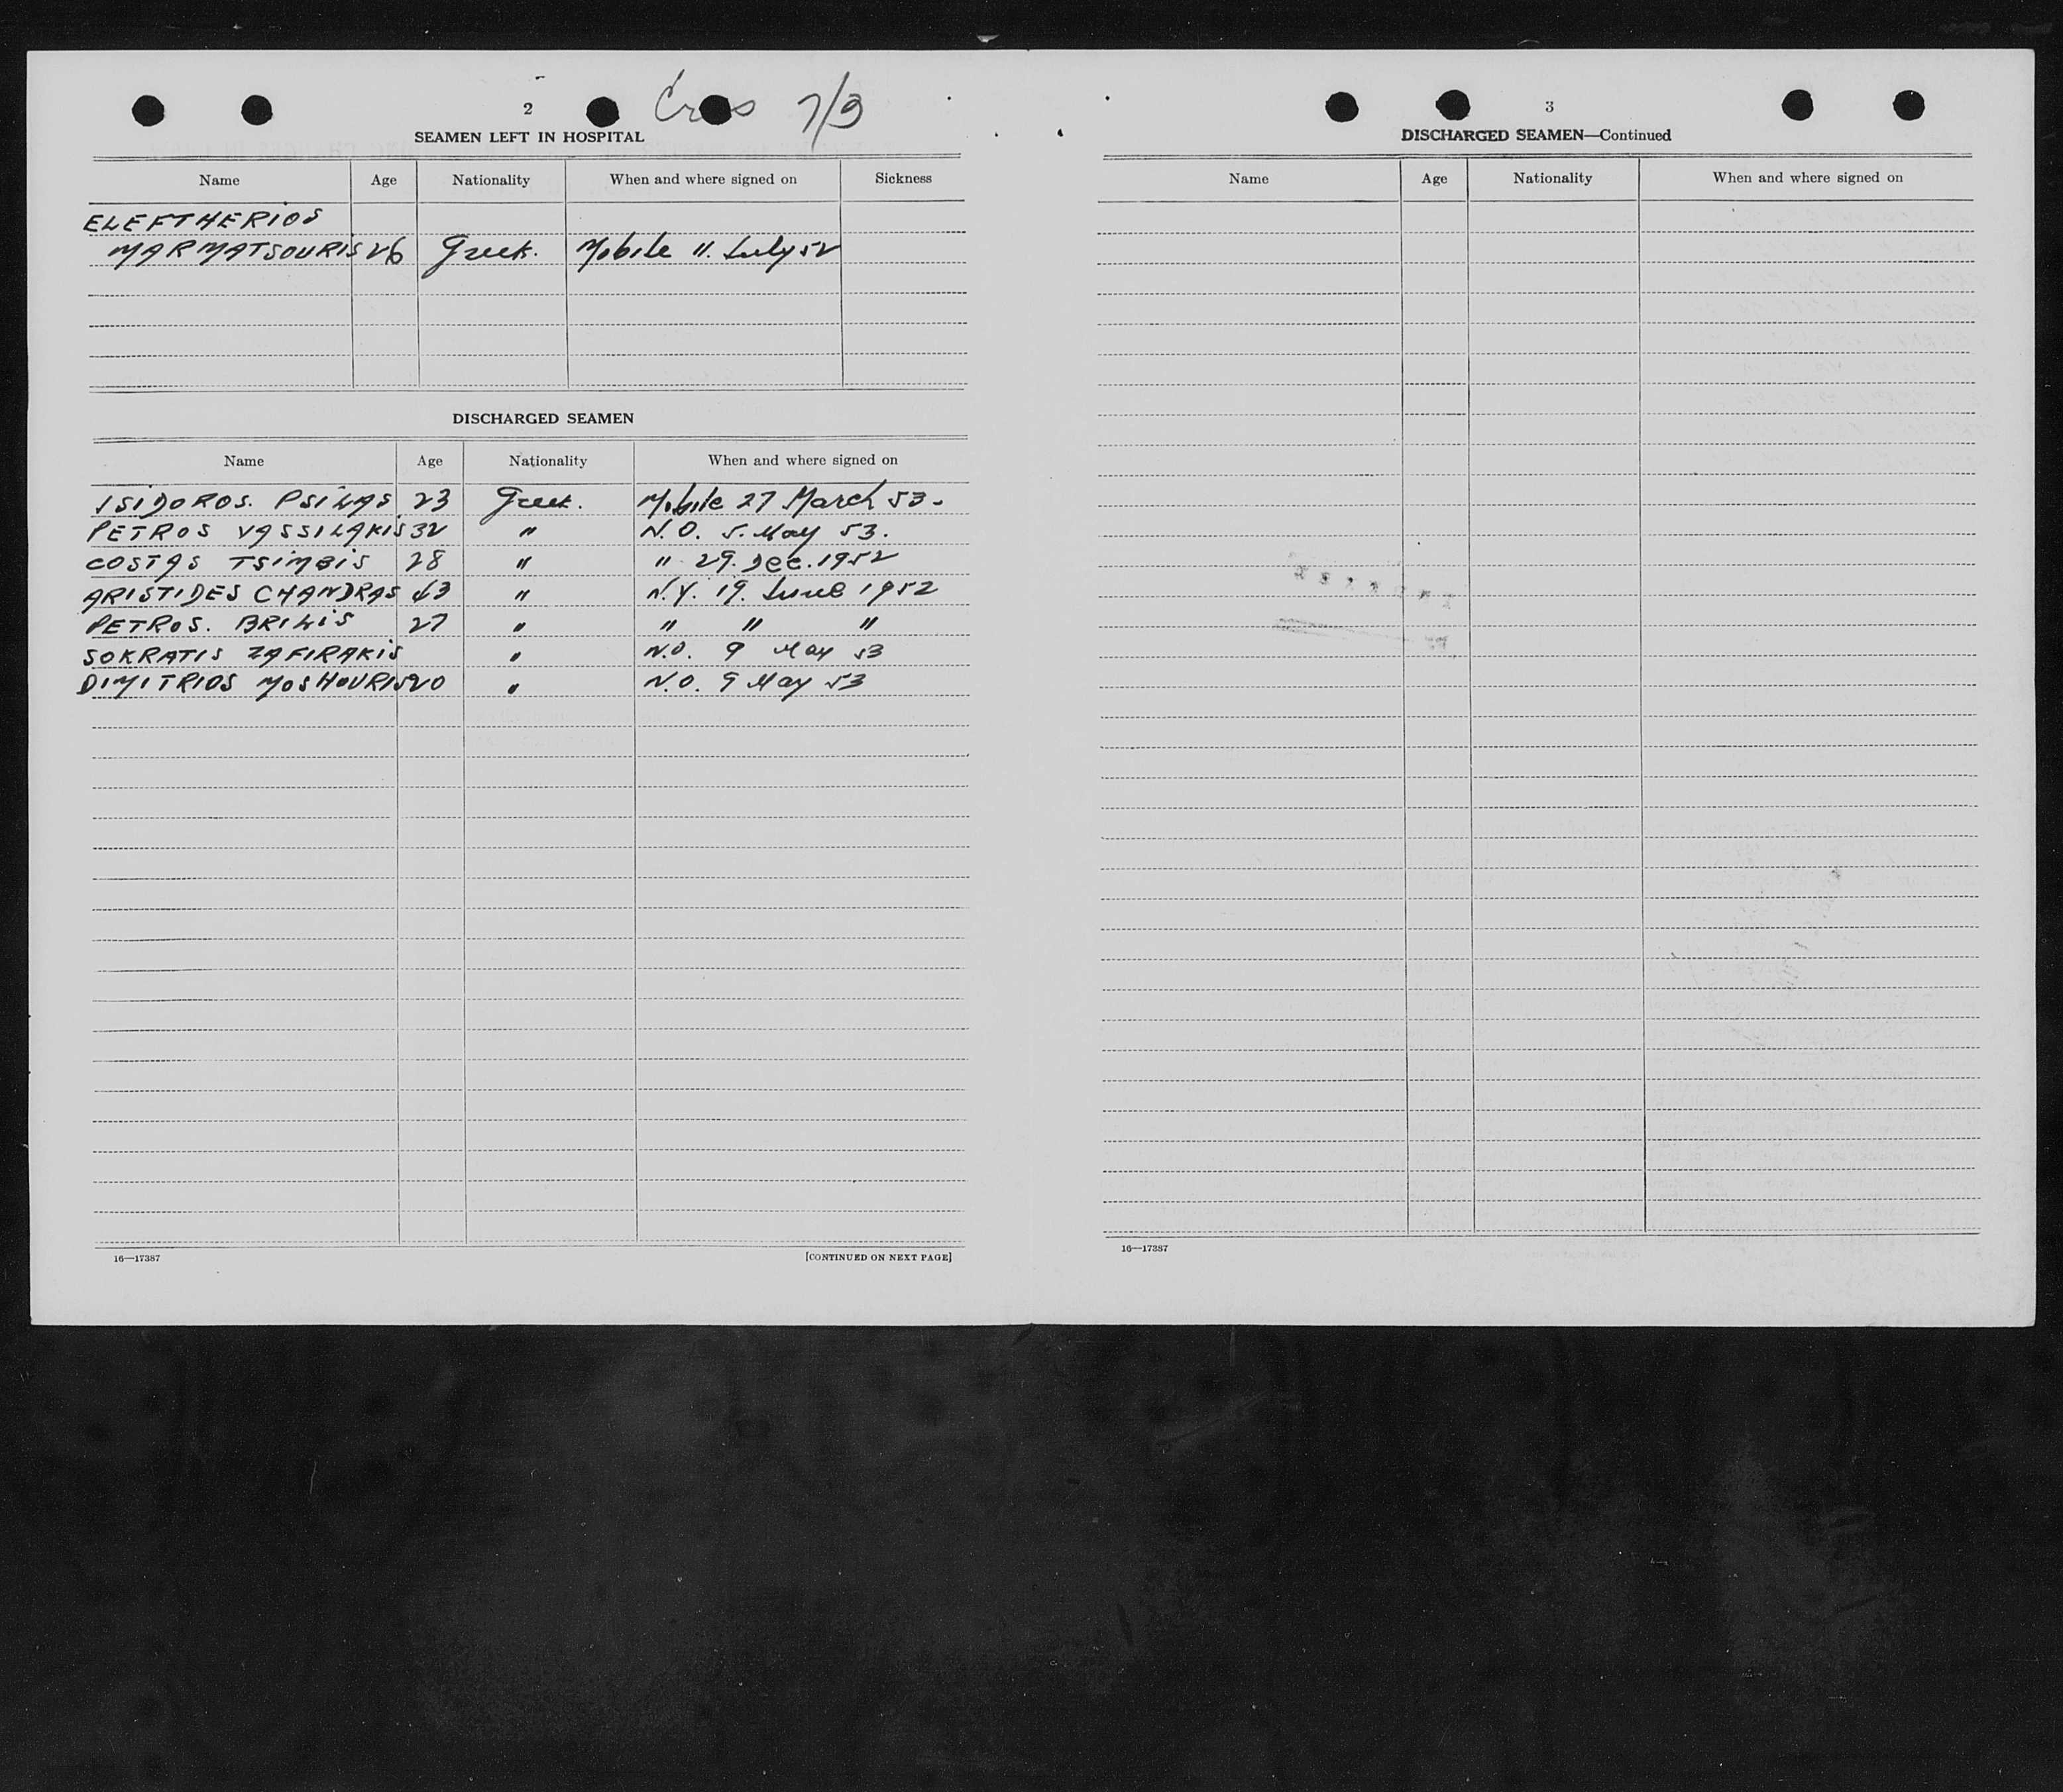 2
7/3
SEAMEN LEFT IN HOSPITAL
Name Age Nationality When and where signed on Sickness
ELEFTHERIOS
MARMATSOURIS 26 Greek. Mobile 11. July 52
DISCHARGED SEAMEN
Name Age Nationality When and where signed on
ISIDOROS. PSILAS 23 Greek. Mobile 27 March 53-
PETROS VASSILAKIS 32 " N.O. 5. May 53.
COSTAS TSIMBIS 28 " " 29. Dec. 1952
ARISTIDES CHANDRAS 43 " N.Y. 19. June 1952
PETROS. BRILIS 27 " " " "
SOKRATIS ZAFIRAKIS " N.O. 9 May 53
DIMITRIOS MOSHOURIS 20 " N.O. 9 May 53
16—17387 [CONTINUED ON NEXT PAGE]
3
DISCHARGED SEAMEN—Continued
Name Age Nationality When and where signed on
16—17387